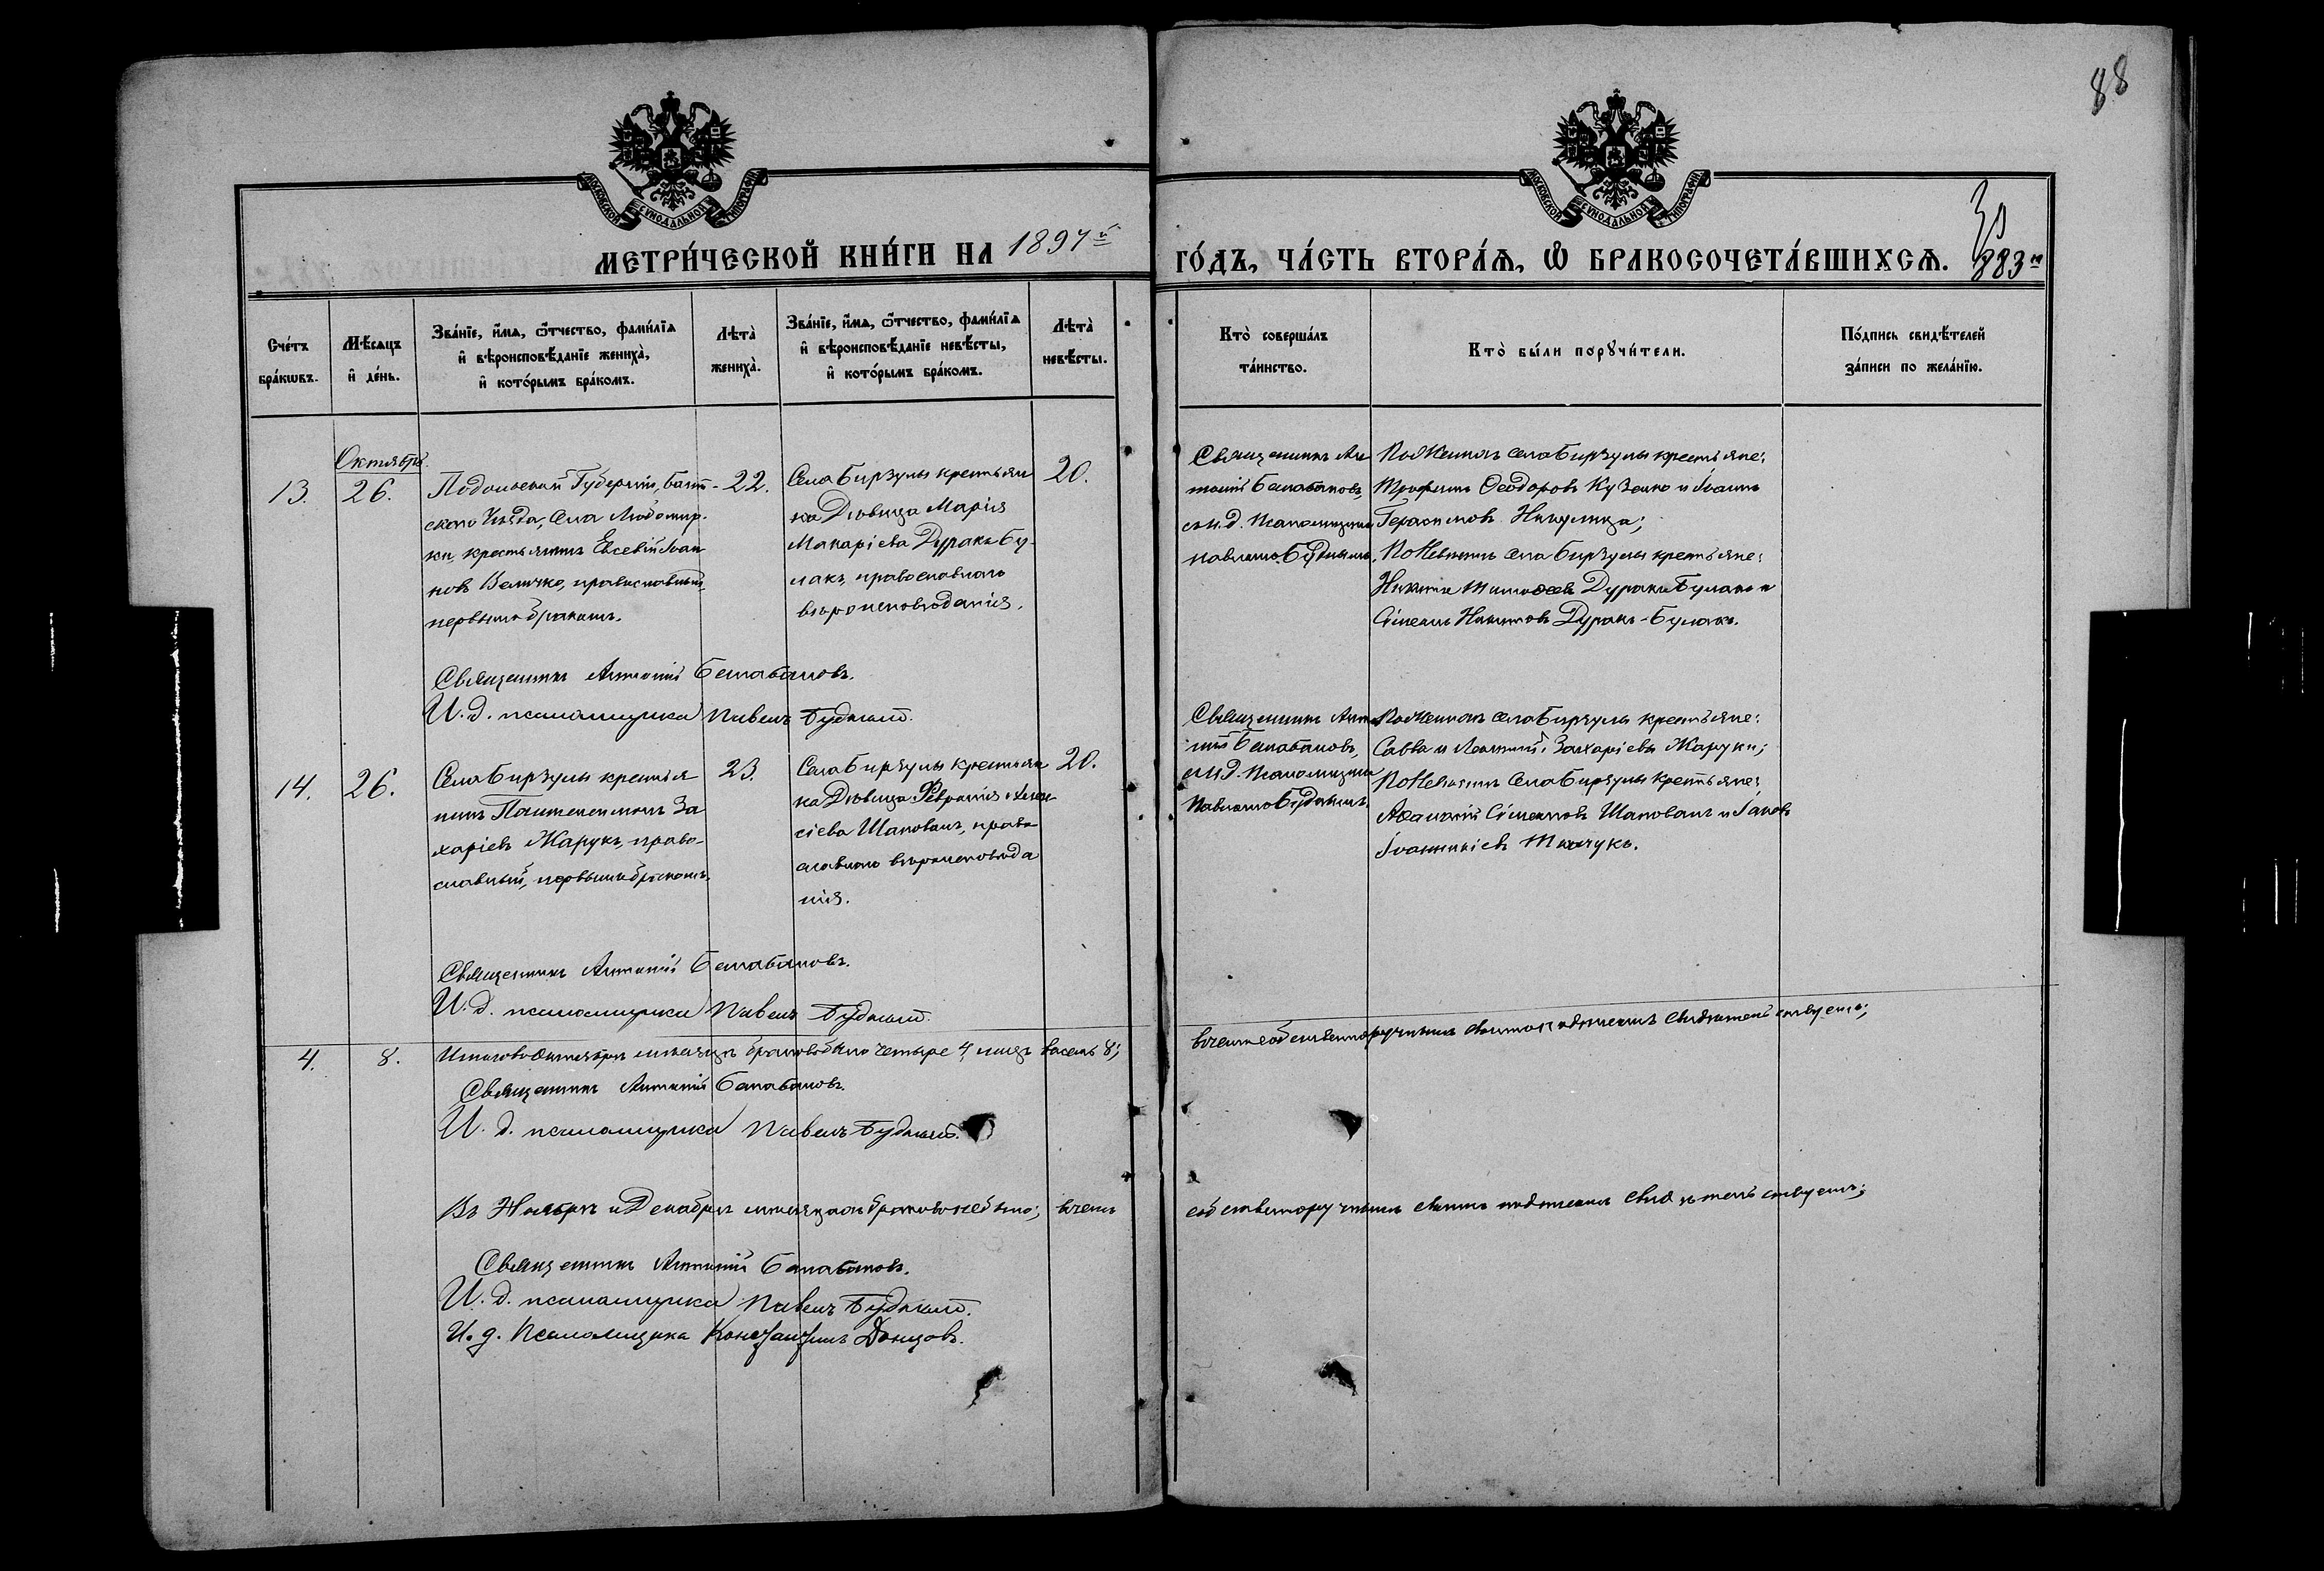 88
МОСКОВСКОЙ СѴНОДАЛЬНОЙ ТИПОГРАФІИ
МОСКОВСКОЙ СѴНОДАЛЬНОЙ ТИПОГРАФІИ
МЕТРИ́ЧЕСКОЙ КНИ́ГИ НА 1897й
ГО́ДЪ, ЧА́СТЬ ВТОРА́Ѧ, Ѽ БРАКОСОЧЕТА́ВШИХСѦ.
883
Сче́тъ бра́кωвъ.
Мѣ́сяцъ и҆ де́нь.
Зва́нїе, и҆́мѧ, ѻ҆́тчество, фамѝлїѧ
и҆ вѣроисповѣ́данїе женихà,
и҆ кото́рымъ бра́комъ.
Лѣтà
женихà.
Зва́нїе, и҆́мѧ, ѻ҆́тчество, фамѝлїѧ
и҆ вѣроисповѣ́данїе невѣ́сты,
и҆ кото́рымъ бра́комъ.
Лѣтà
невѣ́сты.
Ктò соверша́лъ
та́инство.
Ктò бы́ли порꙋчи́тели.
По́дпись свидѣ́телей
за́писи по жела́нїю.
Октябрь.
13.
26.
Подольской Губерніи, Балт-
скаго Уѣзда, Села Любомир-
ки, крестьянинъ Евсевій Іоан
новъ Величко, православный,
первымъ бракомъ.
22.
Села Бирзулы крестьян
ка Дѣвица Марія
Макаріева Дуракъ Бу-
лакъ, православнаго
вѣроисповѣданія.
20.
Священникъ Ан
тоній Балабановъ,
съ и. д. псаломщика
Павломъ Буднымъ.
По Женихѣ села Бирзулы крестьяне:
Трофимъ Ѳеодоровъ Кузько и Іоаннъ
Герасимовъ Никулица;
По Невѣстѣ села Бирзулы крестьяне:
Никита Тимоѳеевъ Дуракъ Булакъ и
Сѵмеонъ Никитовъ Дуракъ-Булакъ.
Священникъ Антоній Балабановъ.
И. д. псаломщика Павелъ Будный.
14.
26.
Села Бирзулы крестья
нинъ Пантелеимонъ За
харіевъ Жарукъ, право-
славный, первымъ бракомъ.
23.
Села Бирзулы крестьян
ка Дѣвица Февронія Алек
сіева Шаповалъ, право
славнаго вѣроисповѣда
нія.
20.
Священникъ Анто
ній Балабановъ,
съ и. д. псаломщика
Павломъ Буднымъ.
По Женихѣ села Бирзулы крестьяне:
Савва и Леонтій Захаріевы Жаруки;
По Невѣстѣ Села Бирзулы крестьяне:
Аѳанасій Сѵмеоновъ Шаповалъ и Іаковъ
Іоанникіевъ Ткачукъ.
Священникъ Антоній Балабановъ.
И. д. псаломщика Павелъ Будный.
4.
8.
Итого въ Октябрѣ мѣсяцѣ браковъ было четыре 4, лицъ восемь 8;
въ чемъ собственноручнымъ своимъ подписомъ свидѣтельствуемъ;
Священникъ Антоній Балабановъ.
И. д. псаломщика Павелъ Будный.
Въ Ноябрѣ и Декабрѣ мѣсяцахъ браковъ не было; въ чемъ
собственноручнымъ своимъ подписомъ свидѣтельствуемъ;
Священникъ Антоній Балабановъ.
И. д. псаломщика Павелъ Будный.
И. д. Псаломщика Константинъ Донцовъ.